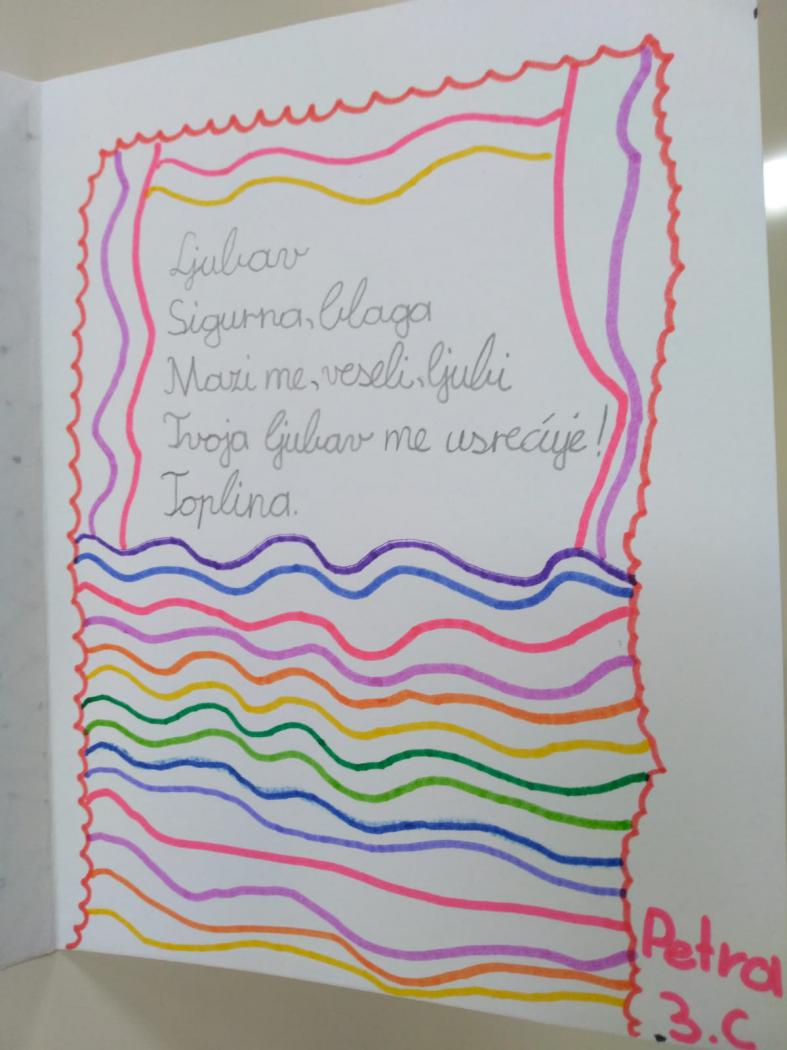 Ljubav
Sigurna, blaga
Mazi me, veseli, ljubi
Tvoja ljubav me usrećuje!
Toplina.
Petra
3.C